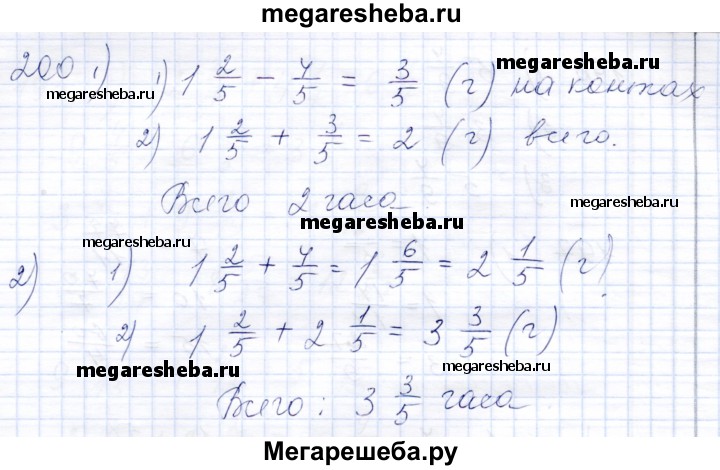 megaresheba.ru
200 1) 1) 1 2/5 - 4/5 = 3/5 (г) на коньках
megaresheba.ru
megaresheba.ru
2) 1 2/5 + 3/5 = 2 (г) всего.
Всего 2 часа
megaresheba.ru
megaresheba.ru
megaresheba.ru
2) 1) 1 2/5 + 4/5 = 1 6/5 = 2 1/5 (г)
2) 1 2/5 + 2 1/5 = 3 3/5 (г)
megaresheba.ru
megaresheba.ru
Всего: 3 3/5 часа
Мегарешеба.ру